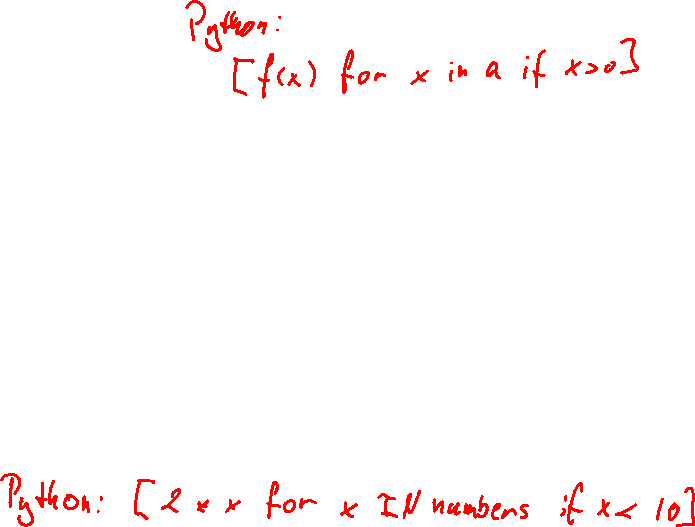 Python:
[f(x) for x in a if x>0]
Python: [2 * x for x IN numbers if x < 10]